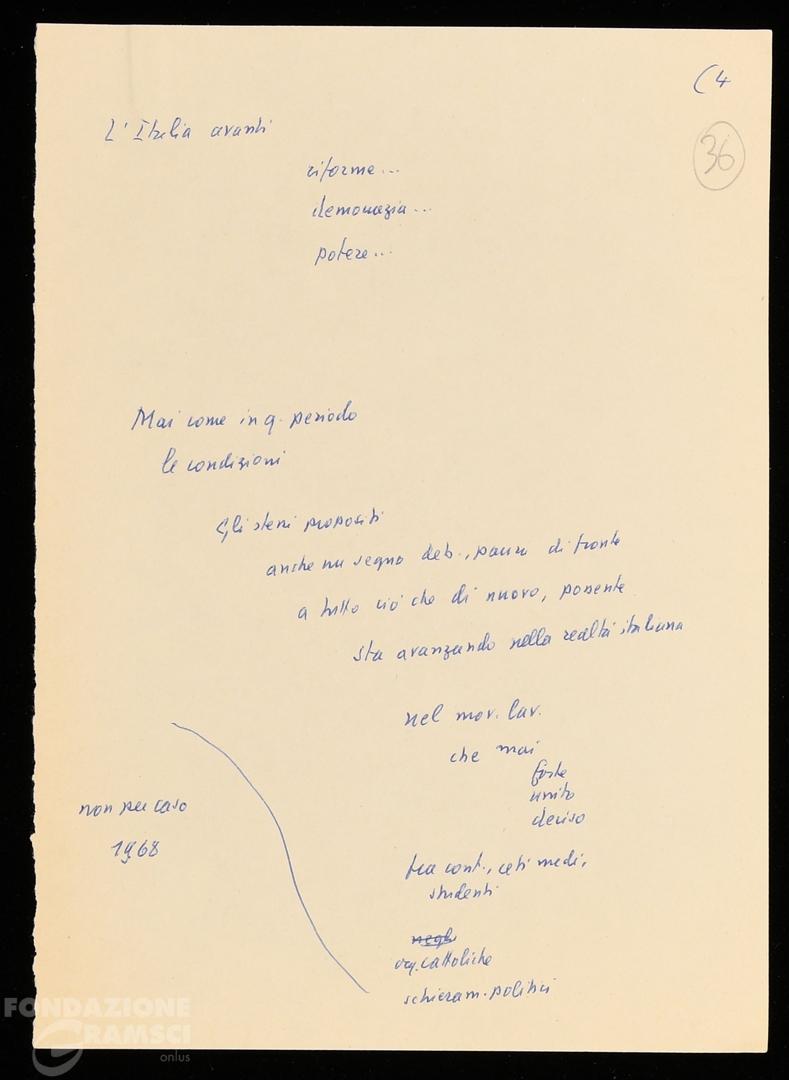 (4
36
L'Italia avanti
riforme...
democrazia...
potere...
Mai come in q. periodo
le condizioni
Gli stessi propositi
anche un segno deb., paura di fronte
a tutto ciò che di nuovo, possente
sta avanzando nella realtà italiana
nel mov. lav.
che mai
forte
unito
deciso
non per caso
1968
tra cont., ceti medi,
studenti
negli
org. cattoliche
schieram. politici
FONDAZIONE
GRAMSCI
onlus